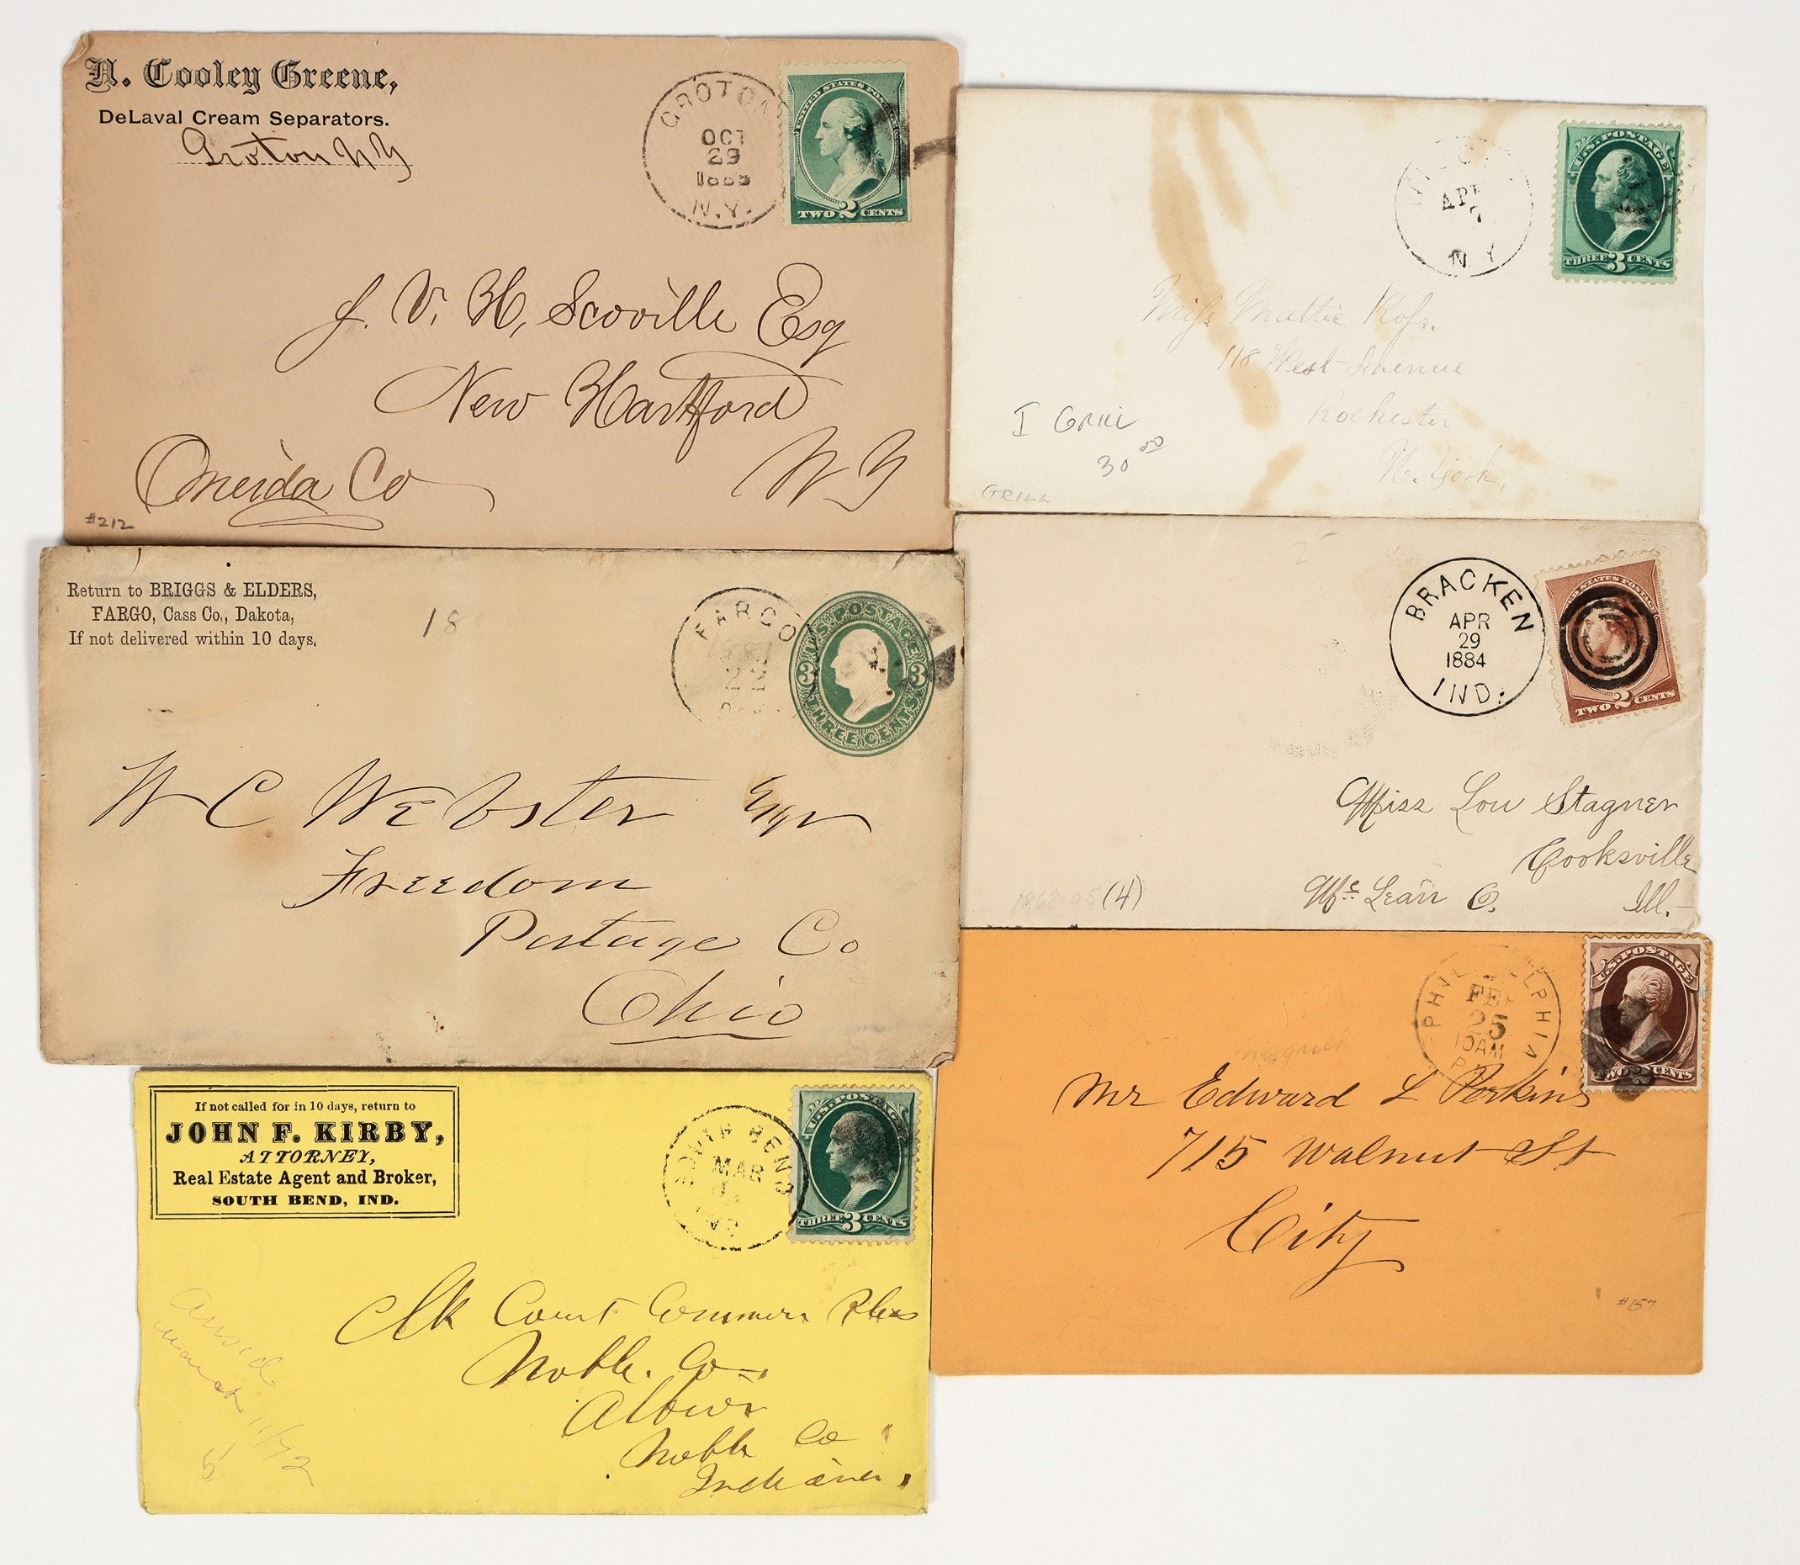 N. Cooley Greene,
DeLaval Cream Separators.
Groton NY
GROTON
OCT
29
N.Y.
UNITED STATES POSTAGE
TWO 2 CENTS
J. V. H. Scoville Esq
New Hartford
Oneida Co N Y
#212
Return to BRIGGS & ELDERS,
FARGO, Cass Co., Dakota,
If not delivered within 10 days.
18
FARGO
1881
22
U.S. POSTAGE
3 3
THREE CENTS
W C Webster Esqr
Freedom
Portage Co
Ohio
If not called for in 10 days, return to
JOHN F. KIRBY,
ATTORNEY,
Real Estate Agent and Broker,
SOUTH BEND, IND.
SOUTH BEND
MAR
IND
U.S. POSTAGE
THREE 3 CENTS
Clk Court Common Pleas
Noble. Co
Albion
Noble Co
Indiana
March 11/72
5
APR
7
N Y
U.S. POSTAGE
THREE 3 CENTS
Miss Mattie Ross.
118 West Avenue
Rochester
N. York.
I GRILL
30 00
GRILL
BRACKEN
APR
29
1884
IND.
UNITED STATES POSTAGE
TWO 2 CENTS
Miss Lou Stagner
Cooksville
Mc Lean Co. Ill.
1868-05 (4)
PHILADELPHIA
FEB
25
10AM
PA
U.S. POSTAGE
TWO 2 CENTS
Mr Edward L Perkins
715 Walnut St
City
#157